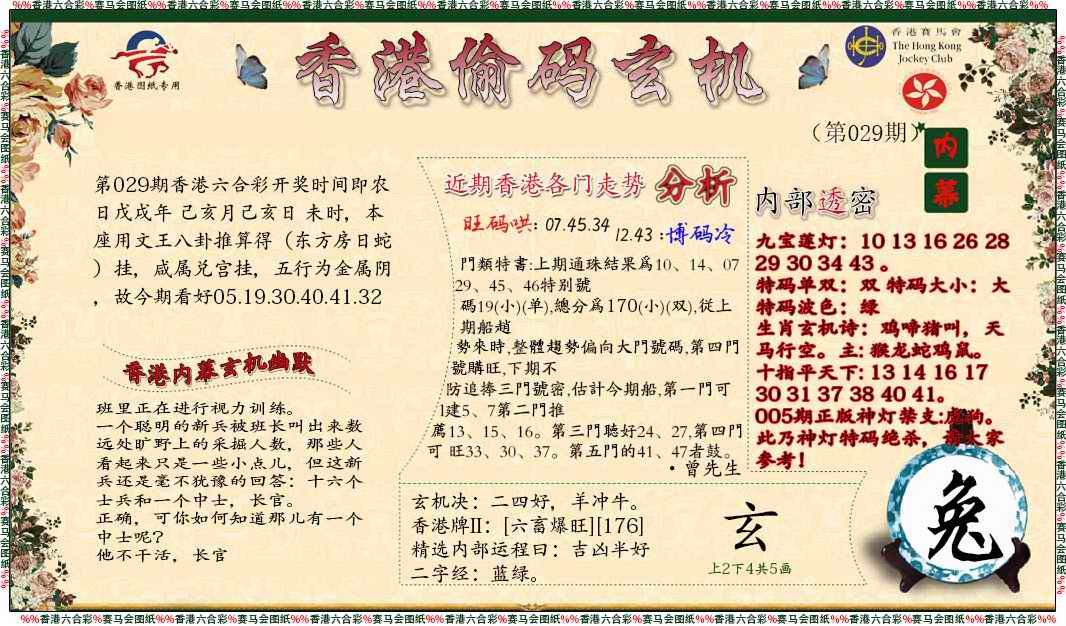 %%香港六合彩%赛马会图纸%%香港六合彩%赛马会图纸%%香港六合彩%赛马会图纸%%香港六合彩%赛马会图纸%%香港六合彩%赛马会图纸%%香港六合彩%赛马会图纸%%香港六合彩%%
香港图纸专用
香港偷码玄机
香港賽馬會
The Hong Kong
Jockey Club
（第029期）
内
幕
第029期香港六合彩开奖时间即农
日戊戌年 己亥月己亥日 未时，本
座用文王八卦推算得（东方房日蛇
）挂，咸属兑宫挂，五行为金属阴
，故今期看好05.19.30.40.41.32
香港内幕玄机幽默
班里正在进行视力训练。
一个聪明的新兵被班长叫出来数
远处旷野上的采掘人数，那些人
看起来只是一些小点儿，但这新
兵还是毫不犹豫的回答：十六个
士兵和一个中士，长官。
正确，可你如何知道那儿有一个
中士呢？
他不干活，长官
近期香港各门走势 分析
旺码哄：07.45.34
12.43：博码冷
門類特書：上期通珠結果爲10、14、07
29、45、46特别號
碼19(小)(单)，總分爲170(小)(双)，從上
期船趟
勢來時，整體趨勢偏向大門號碼，第四門
號購旺，下期不
防追捧三門號密，估計今期船，第一門可
1建5、7第二門推
薦13、15、16。第三門聴好24、27，第四門
可 旺33、30、37。第五門的41、47者鼓。
·曾先生
玄机决：二四好，羊冲牛。
香港牌II：[六畜爆旺][176]
精选内部运程曰：吉凶半好
二字经：蓝绿。
玄
上2下4共5画
内部透密
九宝莲灯：10 13 16 26 28
29 30 34 43 。
特码单双：双 特码大小：大
特码波色：绿
生肖玄机诗：鸡啼猪叫，天
马行空。主：猴龙蛇鸡鼠。
十指平天下：13 14 16 17
30 31 37 38 40 41。
005期正版神灯禁支：虎狗。
此乃神灯特码绝杀，请大家
参考！
兔
%%香港六合彩%赛马会图纸%%香港六合彩%赛马会图纸%%香港六合彩%赛马会图纸%%香港六合彩%赛马会图纸%%香港六合彩%赛马会图纸%%香港六合彩%赛马会图纸%%香港六合彩%%